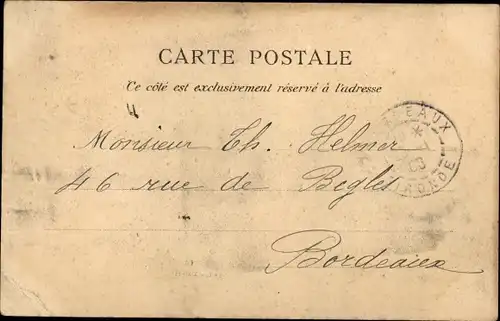 CARTE POSTALE
Ce côté est exclusivement réservé à l'adresse
4
Monsieur Th. Helmer
46 rue de Begles
Bordeaux
EAUX
03
GIRONDE